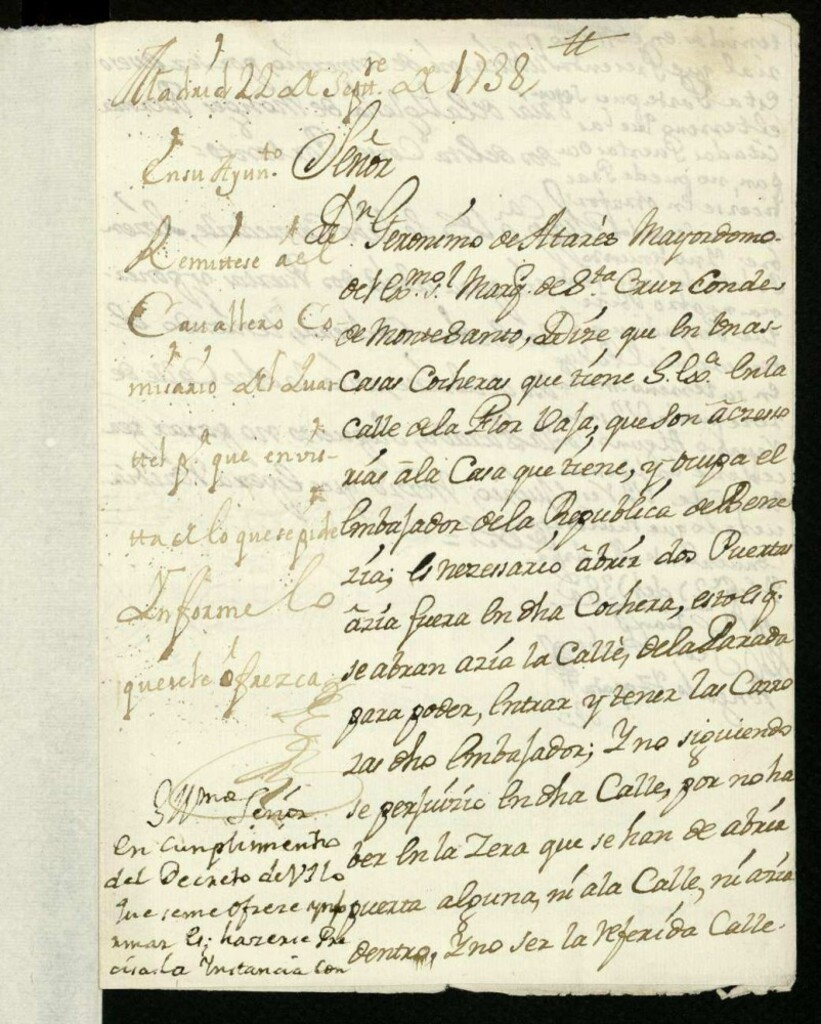 Madrid 22 de Sept.re de 1738,
En su Ayun.to
Remittese al
Cavallero Co-
misario del Quar
ttel p.a que en vis-
tta de lo que se pide
Ynforme lo
que se le ofrezca
Señor
Dn. Geronimo de Atares Mayordomo-
del Ex.mo S. Marq. de S.ta Cruz Conde
de Monte Santo, Dize que en unas-
Casas Cocheras que tiene S. Ex.a en la
Calle de la Flor Vaja, que son acceso
rias a la Casa que tiene, y ocupa el
Embajador de la Republica de Vene
zia; es nezessario abrir dos Puertas
azia fuera en dha Cochera, esto es q.
se abran azia la Calle, de la Parada
para poder, entrar y tener las Carro
zas dho Embajador; Y no siguiendo
se perjuizio en dha Calle, por no ha
ber en la Zera que se han de abrir
puerta alguna, ni a la Calle, ni azia
dentro, Y no ser la referida Calle-
Señor
en Cunplimiento
del Decreto de V.I. lo
que se me ofreze ynfo
rmar Es; hazerse Pre
cisa la Ynstancia con